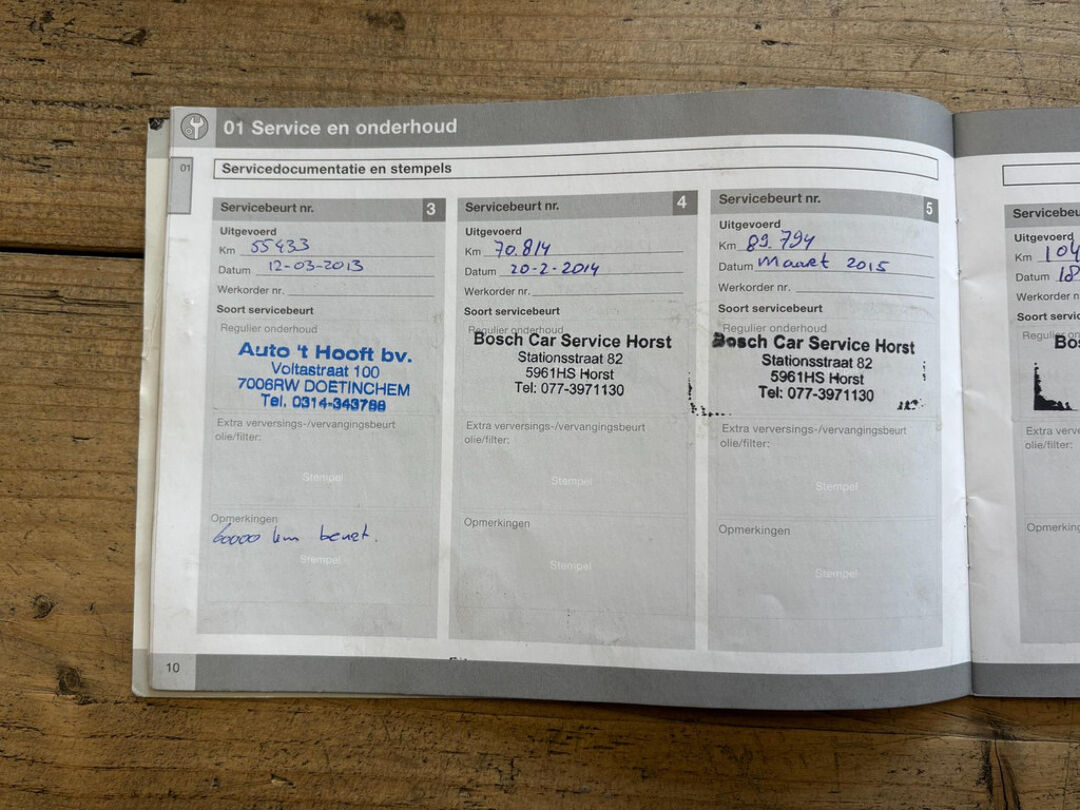 01 Service en onderhoud
01
Servicedocumentatie en stempels
Servicebeurt nr. 3
Uitgevoerd
Km 55433
Datum 12-03-2013
Werkorder nr.
Soort servicebeurt
Regulier onderhoud
Auto 't Hooft bv.
Voltastraat 100
7006RW DOETINCHEM
Tel. 0314-343788
Extra verversings-/vervangingsbeurt
olie/filter:
Stempel
Opmerkingen
60000 km beurt.
Stempel
Servicebeurt nr. 4
Uitgevoerd
Km 70.814
Datum 20-2-2014
Werkorder nr.
Soort servicebeurt
Regulier onderhoud
Bosch Car Service Horst
Stationsstraat 82
5961HS Horst
Tel: 077-3971130
Extra verversings-/vervangingsbeurt
olie/filter:
Stempel
Opmerkingen
Stempel
Servicebeurt nr. 5
Uitgevoerd
Km 89.794
Datum Maart 2015
Werkorder nr.
Soort servicebeurt
Regulier onderhoud
Bosch Car Service Horst
Stationsstraat 82
5961HS Horst
Tel: 077-3971130
Extra verversings-/vervangingsbeurt
olie/filter:
Stempel
Opmerkingen
Stempel
10
Servicebeu
Uitgevoerd
Km 104
Datum 18
Werkorder n
Soort servic
Regulier on
Bos
Extra verve
olie/filter:
Opmerkin